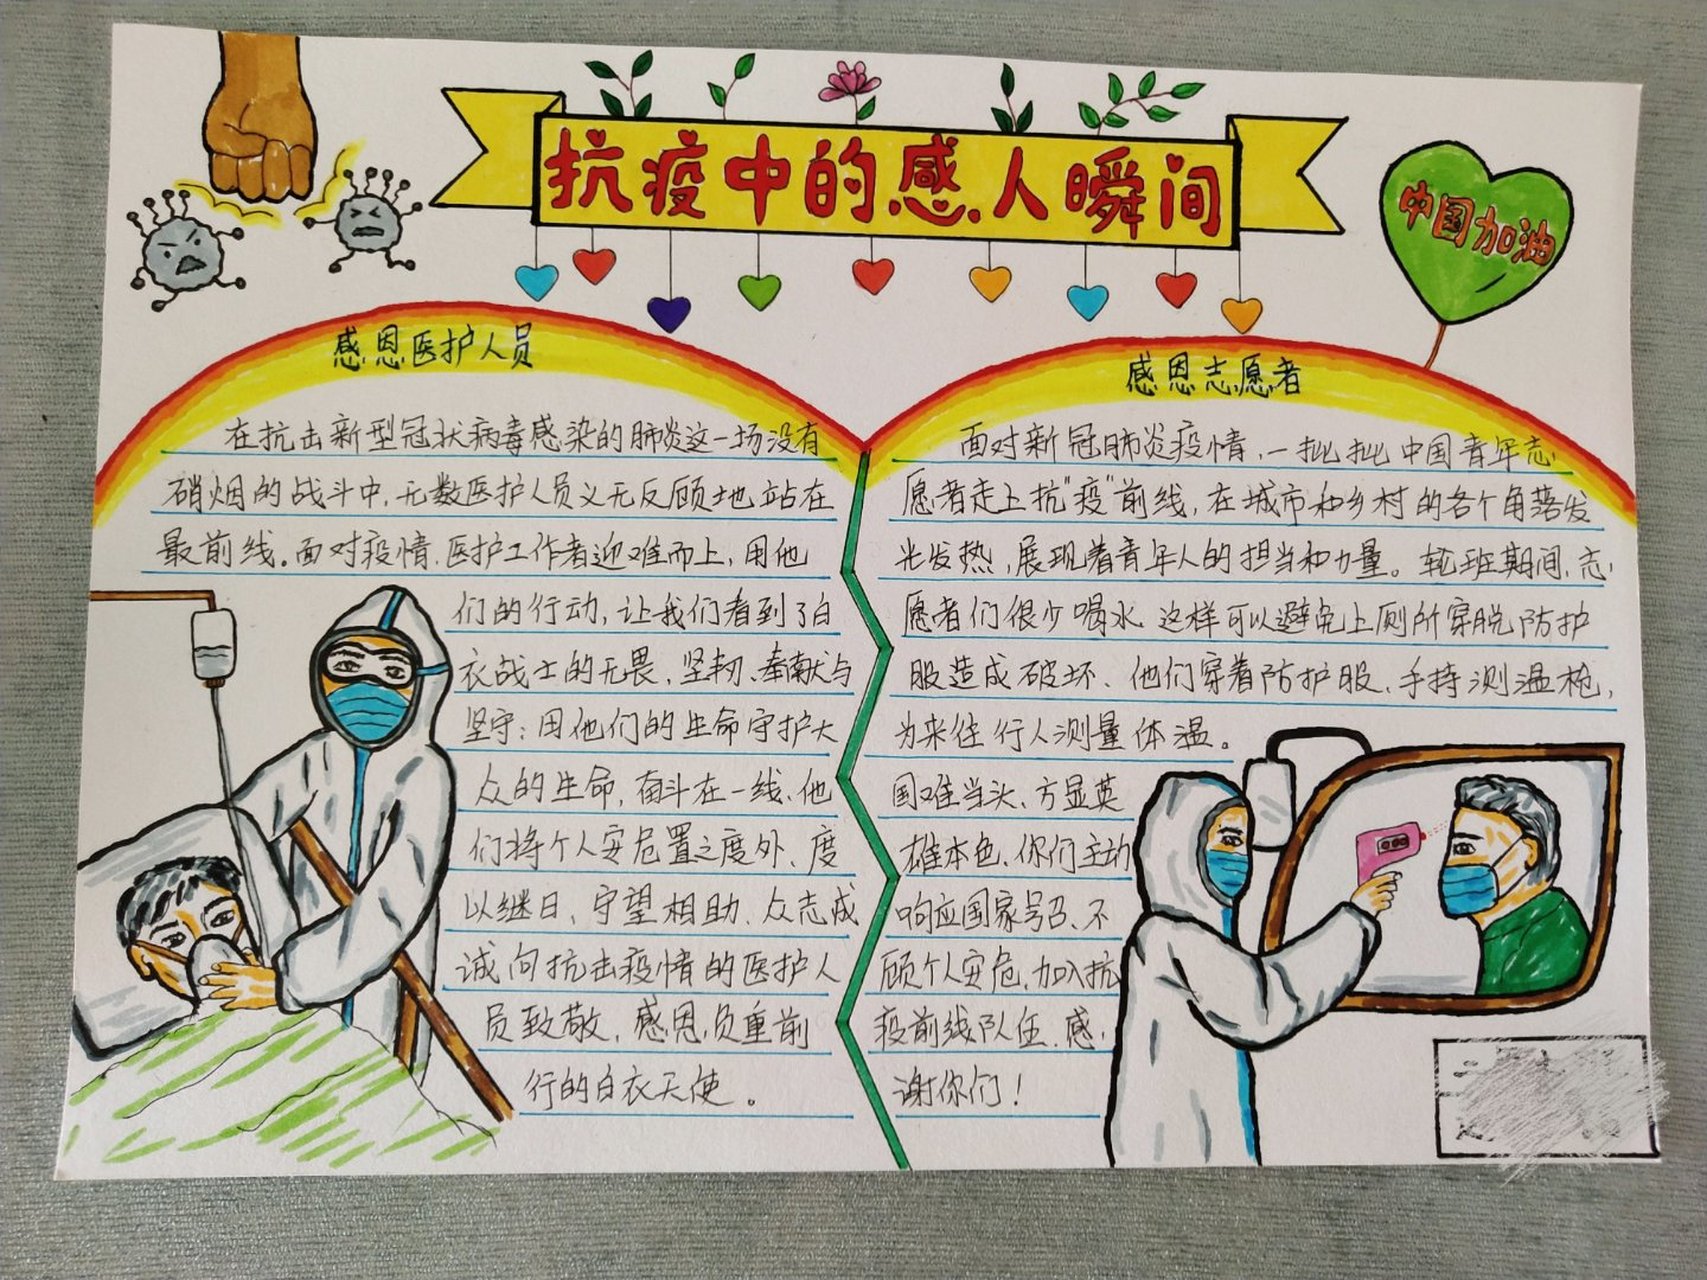 抗疫中的感人瞬间
中国加油
感恩医护人员
在抗击新型冠状病毒感染的肺炎这一场没有
硝烟的战斗中,无数医护人员义无反顾地站在
最前线。面对疫情,医护工作者迎难而上,用他
们的行动,让我们看到了白
衣战士的无畏、坚韧、奉献与
坚守;用他们的生命守护大
众的生命,奋斗在一线、他
们将个人安危置之度外、度
以继日、守望相助、众志成
诚向抗击疫情的医护人
员致敬,感恩负重前
行的白衣天使。
感恩志愿者
面对新冠肺炎疫情,一批批中国青年志
愿者走上抗"疫"前线,在城市和乡村的各个角落发
光发热,展现着青年人的担当和力量。轮班期间,志
愿者们很少喝水 这样可以避免上厕所穿脱防护
服造成破坏、他们穿着防护服,手持测温枪,
为来往行人测量体温。
国难当头、方显英
雄本色、你们主动
响应国家号召、不
顾个人安危,加入抗
疫前线队伍、感
谢你们!